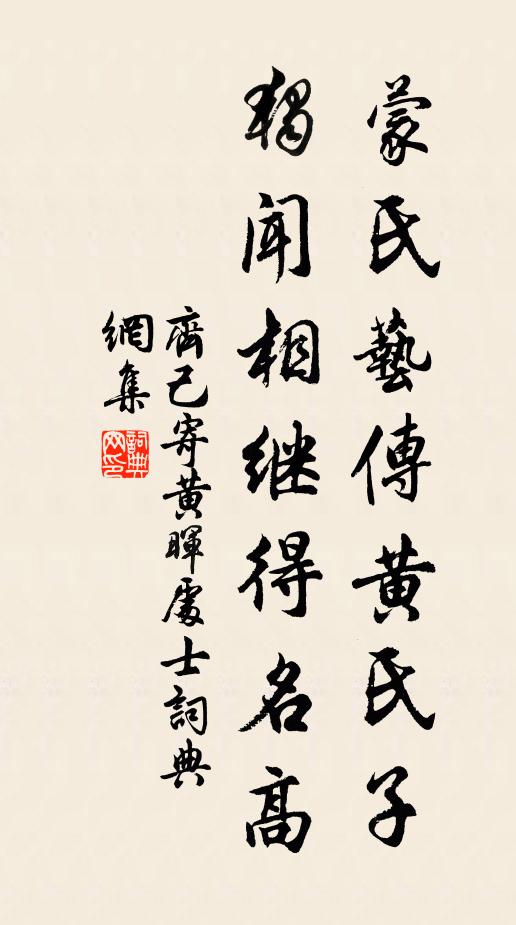 蒙氏藝傳黄氏子
獨聞相继得名高
齊己寄黄暉處士詞典
網集
詞典
网印